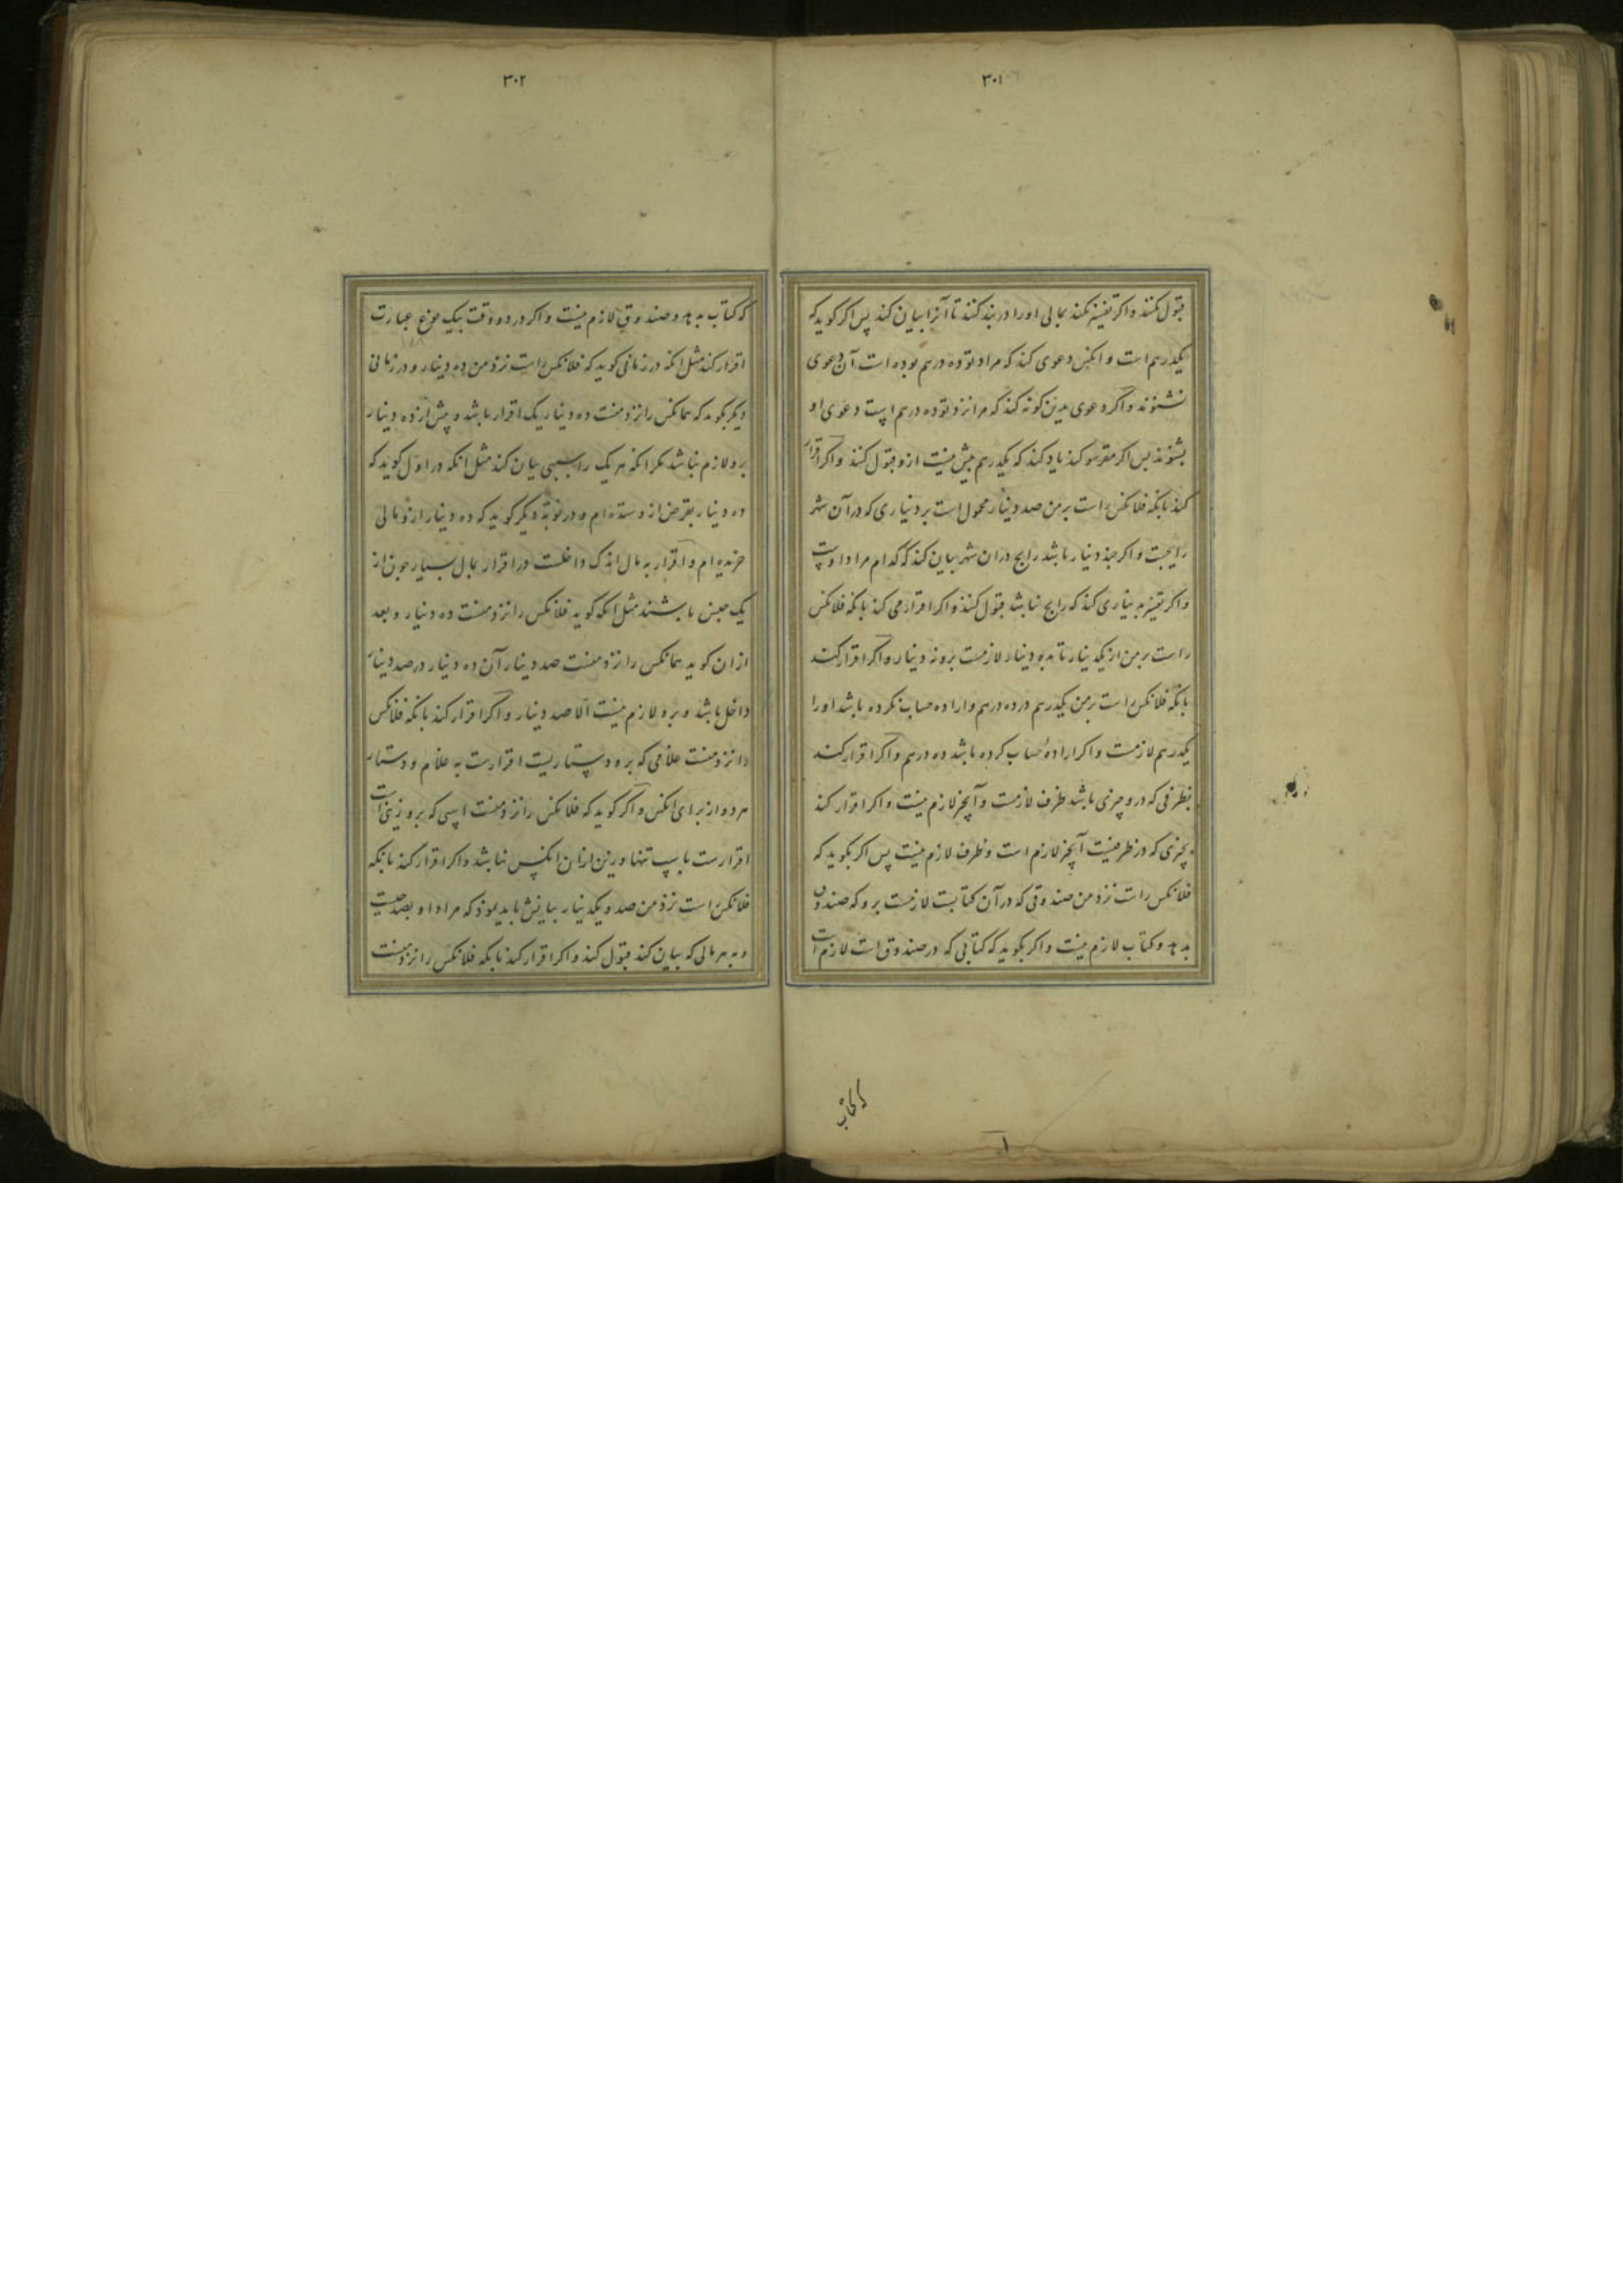 ۳۰۱
قبول نکنند و اکر تفسیر نکند بمالی اورا در بند کنند تا آنرا بیان کند پس اکر کوید که
یکدرهم است و انکس دعوی کند که مراد تو ده درهم بوده است آن دعوی
نشنوند و اکر دعوی بدین کونه کند که مرا نزد تو ده درهم است دعوی او
بشنوند پس اکر مقر سوکند یاد کند که یکدرهم بیش نیست ازو قبول کنند و اکر اقرار
کند بانکه فلانکس راست بر من صد دینار محمول است بر دیناری که در آن شهر
رایجست و اکر چند دینار باشد رایج در ان شهر بیان کند که کدام مراد اوست
و اکر تفسیر بدیناری کند که رایج نباشد قبول کنند و اکر اقرار می کند بانکه فلانکس
راست بر من از یکدینار تا بده دینار لازمست برو نه دینار و اکر اقرار کند
بانکه فلانکس راست بر من یکدرهم در ده درهم و اراده حساب نکرده باشد اورا
یکدرهم لازمست و اکر ارادهٔ حساب کرده باشد ده درهم و اکر اقرار کند
بظرفی که درو چیزی باشد ظرف لازمست و آنچیز لازم نیست و اکر اقرار کند
بچیزی که در ظرفیست آنچیز لازم است و ظرف لازم نیست پس اکر بکوید که
فلانکس راست نزد من صندوقی که در آن کتابست لازمست برو که صندوق
بدهد و کتاب لازم نیست و اکر بکوید که کتابی که در صندوق است لازم است
که کتاب
۳۰۲
که کتاب بدهد و صندوق لازم نیست و اکر در دو وقت بیک نوع عبارت
اقرار کند مثل انکه در زمانی کوید که فلانکس راست نزد من ده دینار و در زمانی
دیکر بکوید که همانکس را نزد منست ده دینار یک اقرار باشد و بیش از ده دینار
برو لازم نباشد مکر انکه هر یک را سببی بیان کند مثل انکه در اول کوید که
ده دینار بقرض ازو ستده ام و در نوبة دیکر کوید که ده دینار ازو مالی
خریده ام و اقرار به مال اندک داخلست در اقرار بمال بسیار چون از
یک جنس باشند مثل انکه کوید فلانکس را نزد منست ده دینار و بعد
از ان کوید همانکس را نزد منست صد دینار آن ده دینار در صد دینار
داخل باشد و برو لازم نیست الا صد دینار و اکر اقرار کند بانکه فلانکس
را نزد منست غلامی که برو دستاریست اقرارست به غلام و دستار
هر دو از برای انکس و اکر کوید که فلانکس را نزد منست اسپی که برو زینی است
اقرارست باسپ تنها و زین از ان انکس نباشد و اکر اقرار کند بانکه
فلانکس راست نزد من صد و یکدینار بیانش باید نمود که مراد او بصد چیست
و به هر مالی که بیان کند قبول کنند و اکر اقرار کند بانکه فلانکس را نزد منست